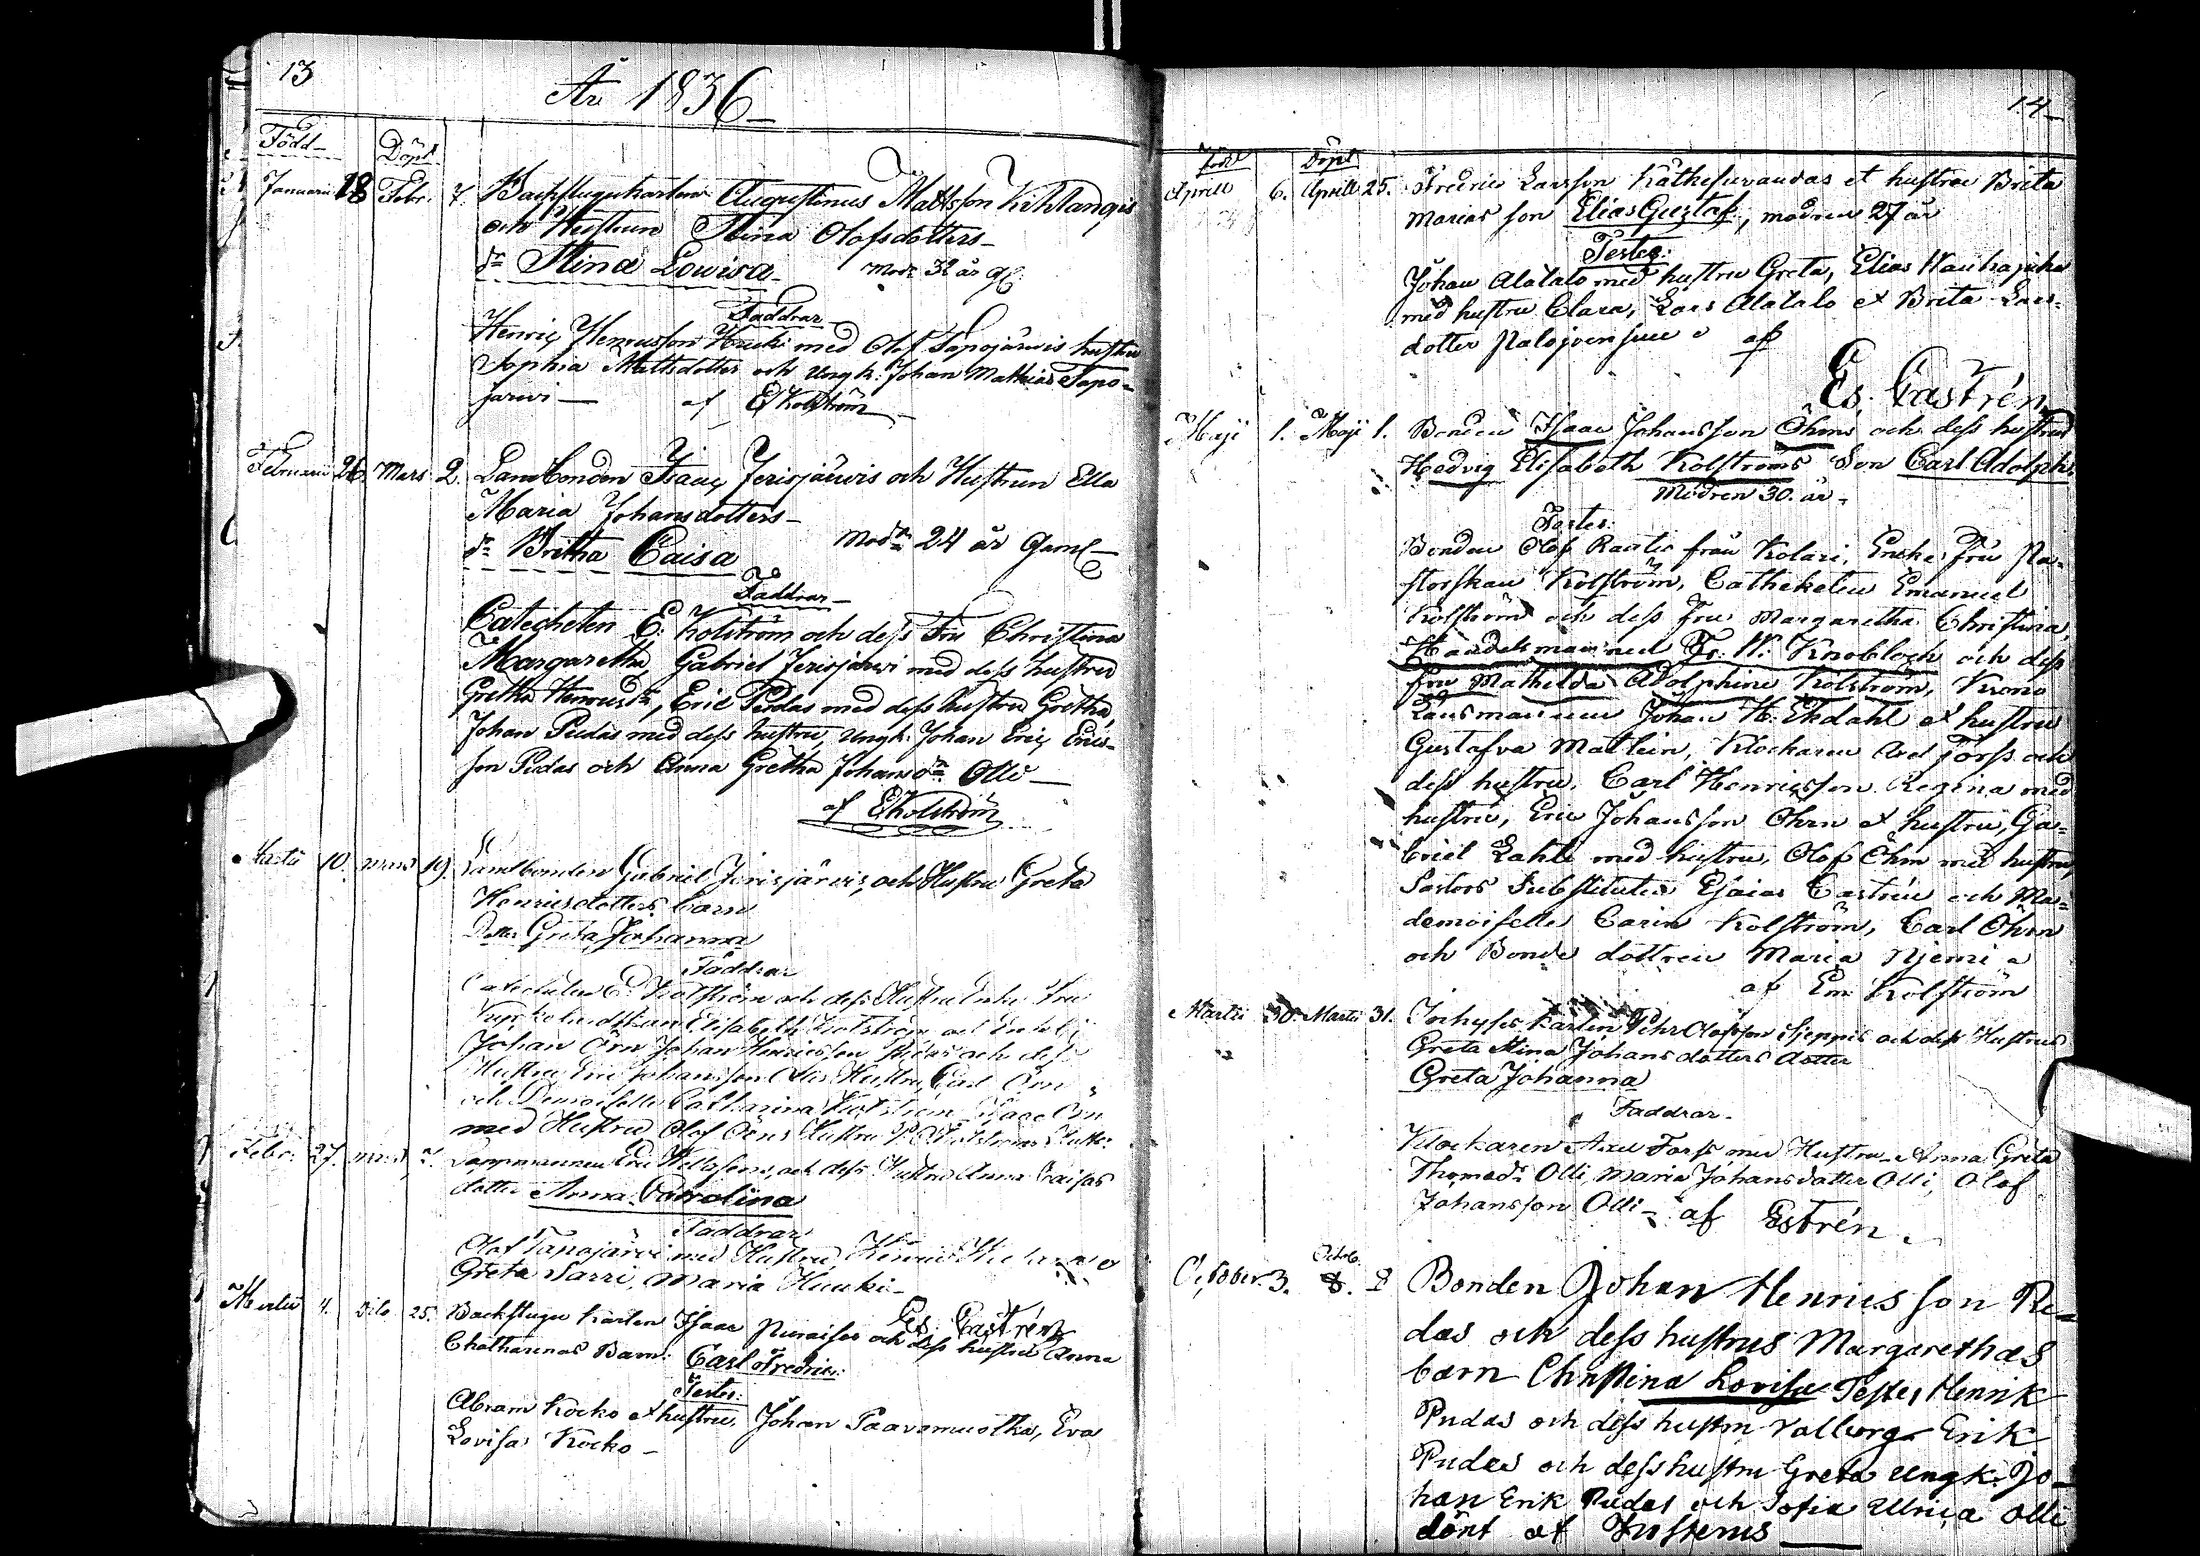 13
År 1836
Född Döpt
Januarii 18 Febr. 7. Backstugukarlen Augustinus Mattsson Kihlangis
och Hustrun Stina Olofsdotters
dr Stina Lowisa Modr 32 år gl.
Faddrar
Henric Henricsson Hucki med Olof Tapojärvis hustru
Sophia Mattsdotter och Ungk: Johan Mathias Tapo-
jarwi af E Kolström
Februarii 26 Mars 2. Landbonden Isaac Jerisjärwis och Hustrun Ella
Maria Johansdotters
dr Britha Caisa Modrn 24 år Gaml
Faddrar
Catecheten E. Kolström och dess Fru Christina
Margaretha, Gabriel Jerisjärwi med dess hustru
Gretha Henricsdr, Eric Pudas med dess hustru Gretha,
Johan Pudas med dess hustru, Ungk: Johan Eric Erics-
son Pudas och Anna Gretha Johansdr Olli
af E Kolström
Martii 10. mars 19. Landbonden Gabriel Jerisjärvis, och Hustru Greta
Henricsdotters barn
Dotter Greta Johanna
Faddrar
Catecheten E. Kolström och dess Hustru Enke Fru
Elisabeth Kolström och
Johan Örn Johan Henricsson Pudas och dess
Hustru Eric Johansson Hustru Carl Örn
och Demoiselle Catharina Kolström Isaac Örn
med Hustru Olof Örns Hustru
Febr. 27. mars Lappmannen Eric och dess Hustru Anna Caisas
dotter Anna Carolina
Faddrar
Olof Tapojärvi med Hustru, Henric
Greta Sarri, Maria Hucki
Martii 4. Dito 25. Backstugu karlen Isaac Puraises och dess hustru Anna
Es. Castrén
Chatharinas Barn: Carl Fredric:
Testes:
Abram Kocko et hustru, Johan Paavomuotka, Eva
Lovisa Kocko
14
född Döpt
Aprill 6. Aprill 25. Fredric Larsson Käthesuvandas et hustru Brita
Marias son Elias Gustaf, modren 27 år
Testes:
Johan Alatalo med hustru Greta, Elias Hauhajuha
med hustru Clara, Lars Alatalo et Brita Lars-
dotter Palojoensuu af
Es. Castrén
Maji 1. Maji 1. Bonden Isaac Johansson Öhrns och dess hustrus
Hedvig Elisabeth Kolströms Son Carl Adolph
Modren 30. år
Testes:
Bonden Olof Rautio från Kolari, Enke fru Pa-
storskan Kolström, Catheketen Emanuel
Kolström och dess Fru Margaretha Christina
Handelsmannen Fr. W. Knobloch och dess
fru Mathelda Adolphine Kolström, Krono
Länsmannen Johan H. Ekdahl et hustru
Gustafva Matlein, Klockaren Axel Forss och
dess hustru, Carl Henricsson Regina med
hustru, Eric Johansson Öhrn et hustru, Ga-
briel Lahti med hustru, Olof Öhrn med hustru,
Pastors Substituten Esaias Castrén och Ma-
demoiselle Carin Kolström, Carl Öhrn
och Bonde dottren Maria Njemi
af Em Kolström
Martii 30. Martii 31. Inhyses karlen Pehr Olofsson Sjeppis och dess Hustrus
Greta Stina Johansdotters dotter
Greta Johanna
Faddrar
Klockaren Axel Forss med Hustru Anna Greta
Thomædr Olli, Maria Johansdotter Olli, Olof
Johansson Olli af Estrén
October 3. Octob. 8. Bonden Johan Henricsson Pu-
das och dess hustrus Margarethas
barn Christina Lovisa Testes Henrik
Pudas och dess hustru Valborg Erik
Pudas och dess hustru Greta Ungk. Jo-
han Erik Pudas och Sofia Ulrica Olli
dönt af